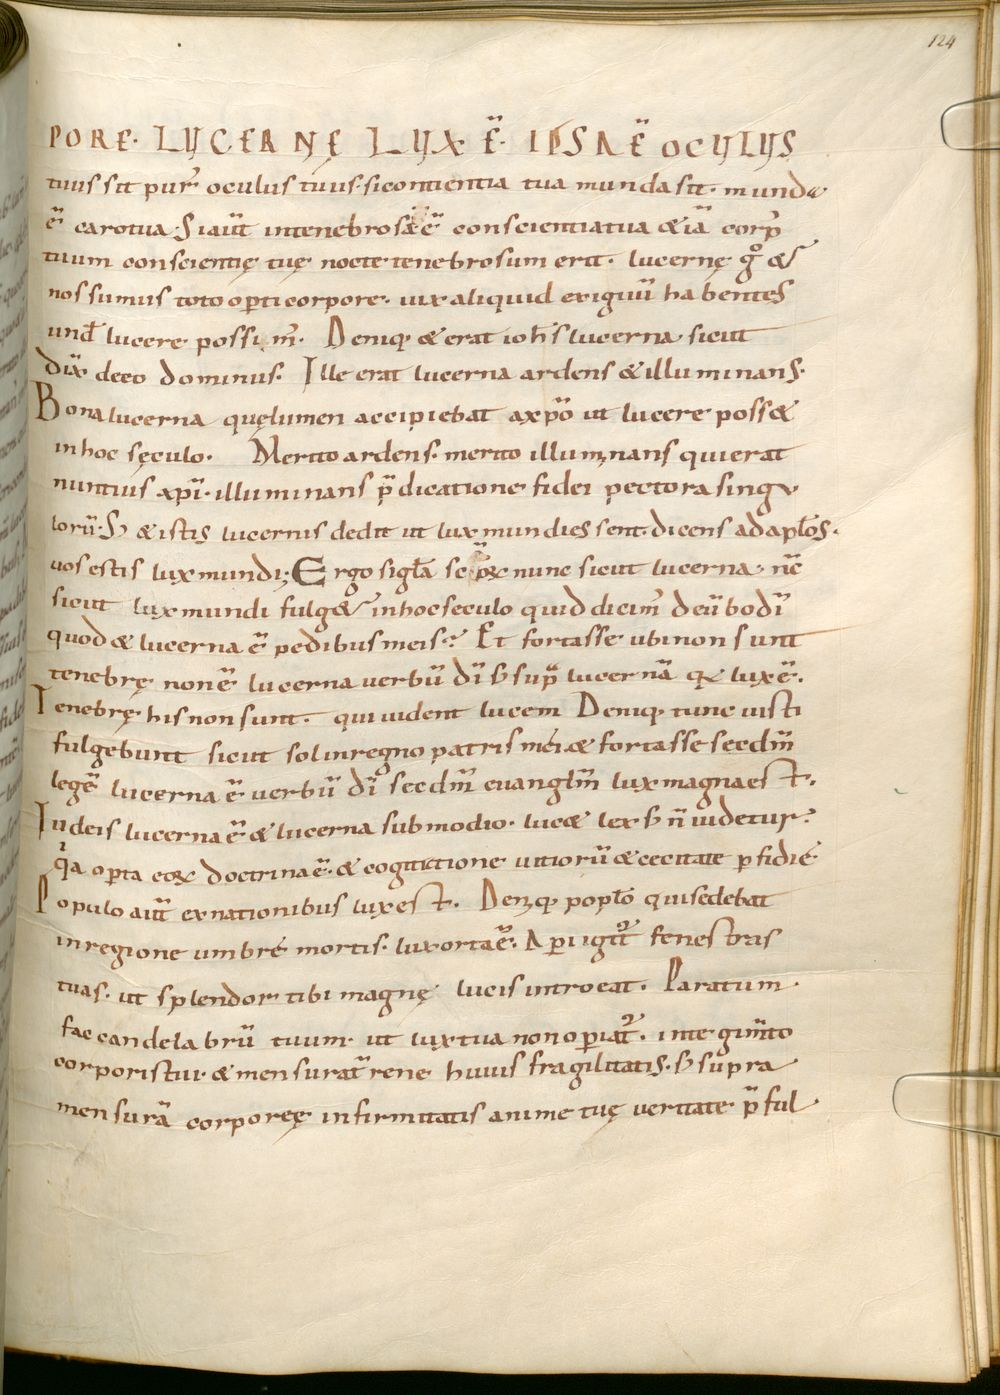 124
PORE· LUCERNĘ LUX Ē· IPSA Ē OCULUS
tuus sit pur oculus tuus· si contientia tua munda sit· munda
ē caro tua· Si aut intenebrosa ē conscientia tua & iā corp
tuum conscientię tuę nocte tenebrosum erit· lucernę g° &
nos sumus toto opti corpore· uix aliquid exiguū habentes
und lucere possim· Deniq· & erat iohs lucerna sicut
dix de eo dominus· Ille erat lucerna ardens & illuminans·
Bona lucerna quę lumen accipiebat a xpo ut lucere poss&
in hoc sęculo· Merito ardens· merito illuminans qui erat
nuntius xpi· illuminans p̄dicatione fidei pectora singu
lorū· S; & istis lucernis dedit ut lux mundi essent· dicens ad aplos·
uos estis lux mundi; Ergo si gła scorꝝ nunc sicut lucerna· nc
sicut lux mundi fulg& in hoc seculo quid dicim deū bo dī
quod & lucerna ē pedibus meis? Et fortasse ubi non sunt
tenebrę non ē lucerna uerbū dī s; sup lucernā q; lux ē·
Tenebrę his non sunt· qui uident lucem Deniq· tunc iusti
fulgebunt sicut sol in regno patris mei· & fortasse secdm
legē lucerna ē uerbū dī secdm euanglm lux magna est·
Iudeis lucerna ē & lucerna sub modio· luc& lex s; n̄ uidetur?
q̄a opta eoꝝ doctrina ē· & cogitatione uitiorū & cecitate pfidię
Populo aut ex nationibus lux est· Deniq· poplo qui sedebat
in regione umbrę mortis· lux orta ē· Api igit fenestras
tuas· ut splendor tibi magnę lucis introeat· Paratum
fac candelabrū tuum ut lux tua non opiat· integimto
corporis tui· & mensurat rene huius fragilitatis· s; supra
mensurā corporeę infirmitatis animę tuę ueritate p̄ful